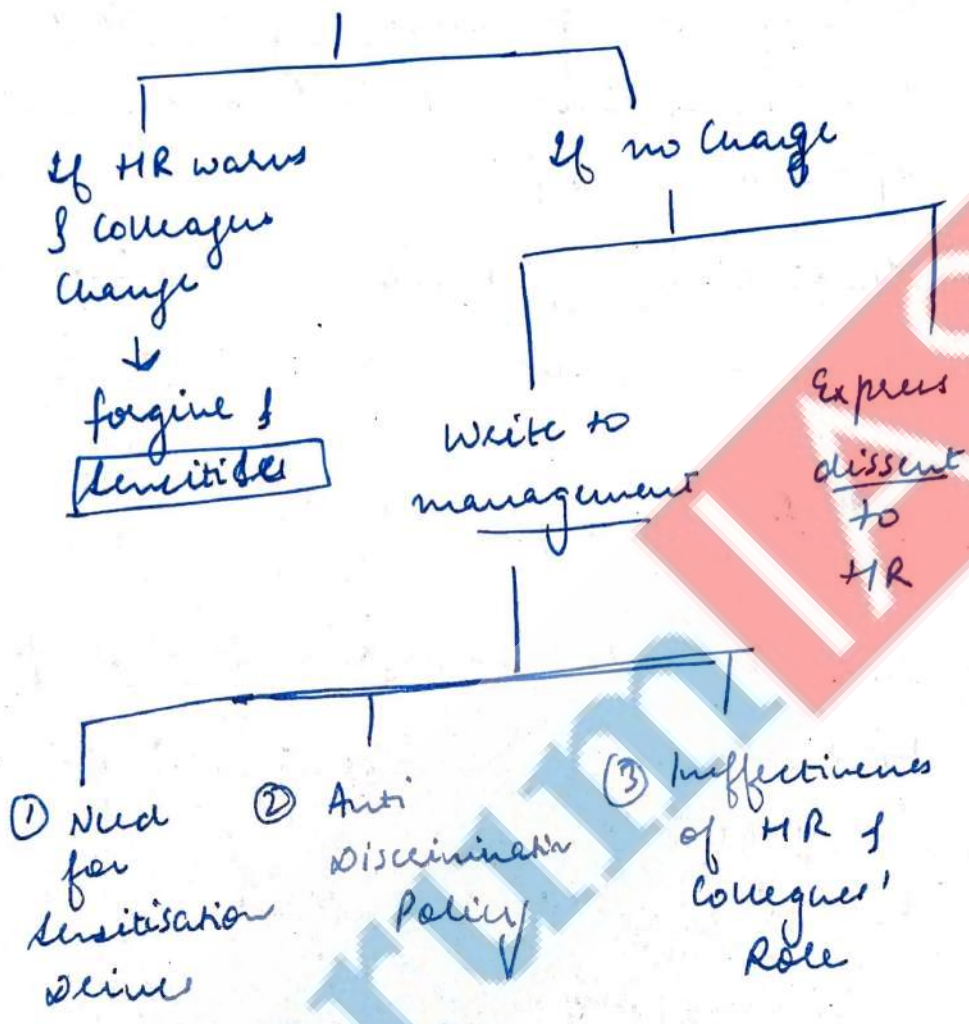 If HR warns
& Colleagues
Change
↓
forgive &
Sensitise
If no Change
Write to
management
Express
dissent
to
HR
① Need
for
Sensitisation
Drives
② Anti
Discrimination
Policy
③ Ineffectiveness
of HR &
Collegues'
Role
rum IAS